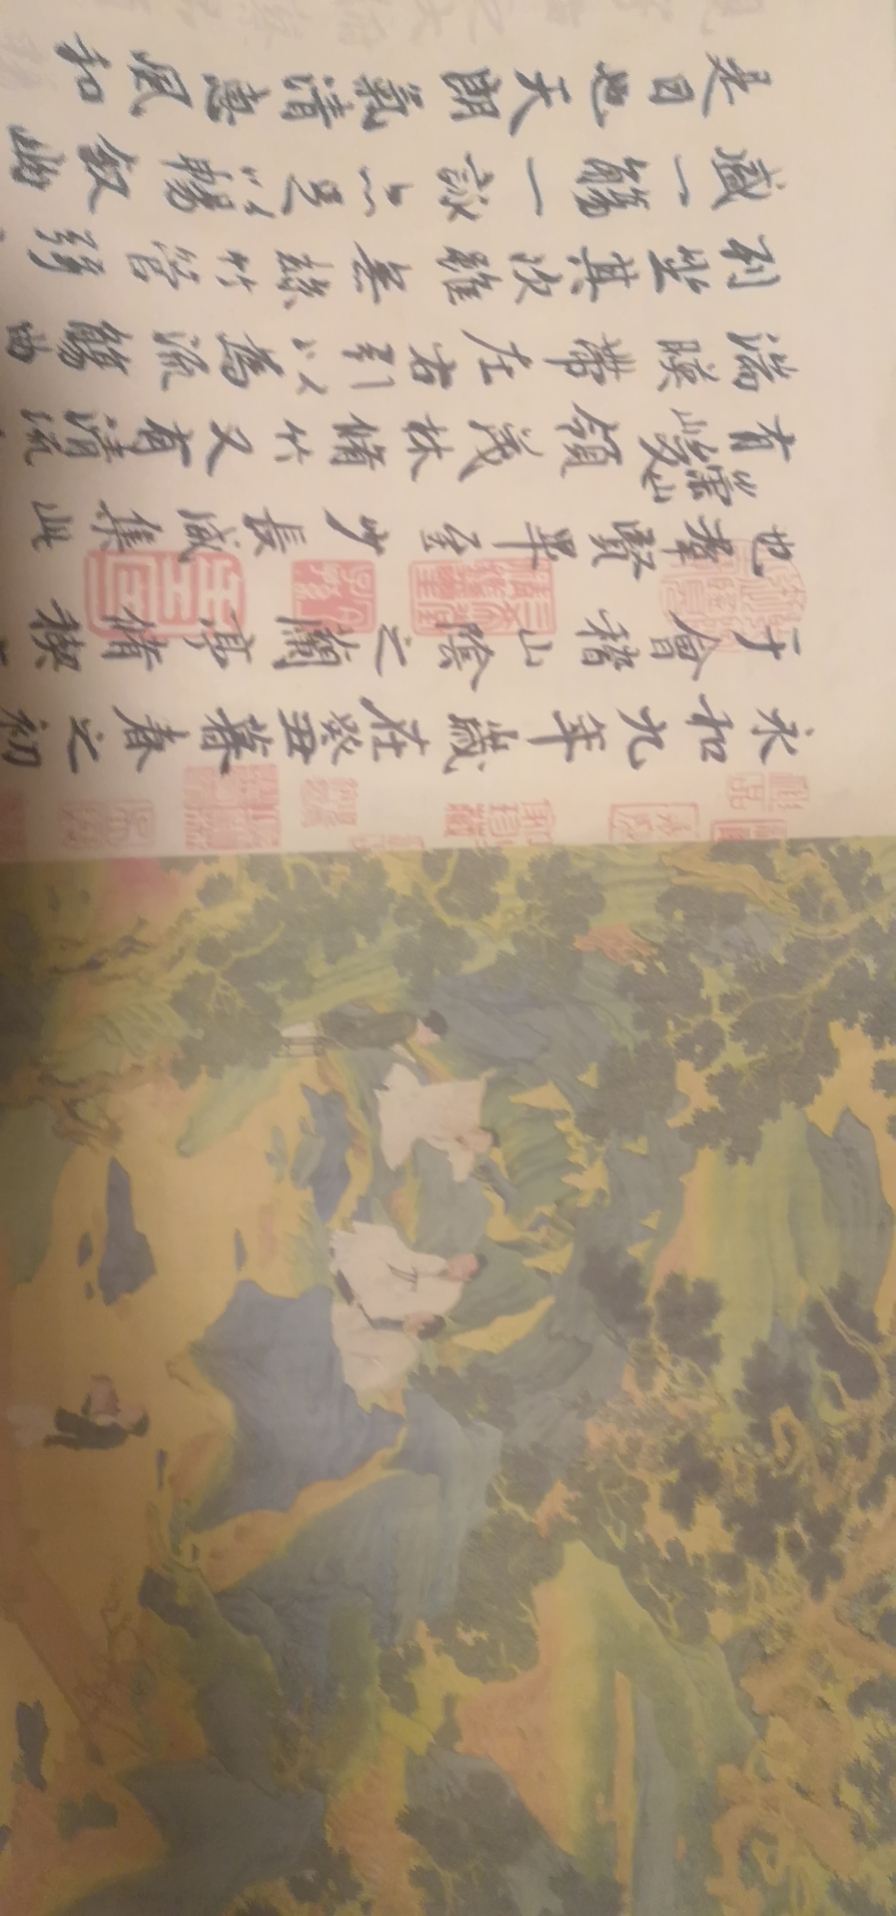 永和九年歲在癸丑暮春之初
于會稽山陰之蘭亭脩稧
也羣賢畢至少長咸集此
有崇山峻領茂林脩竹又有清流
湍暎帶左右引以為流觴曲
列坐其次雖無絲竹管弦
盛一觴一詠亦足以暢敘幽
是日也天朗氣清惠風和